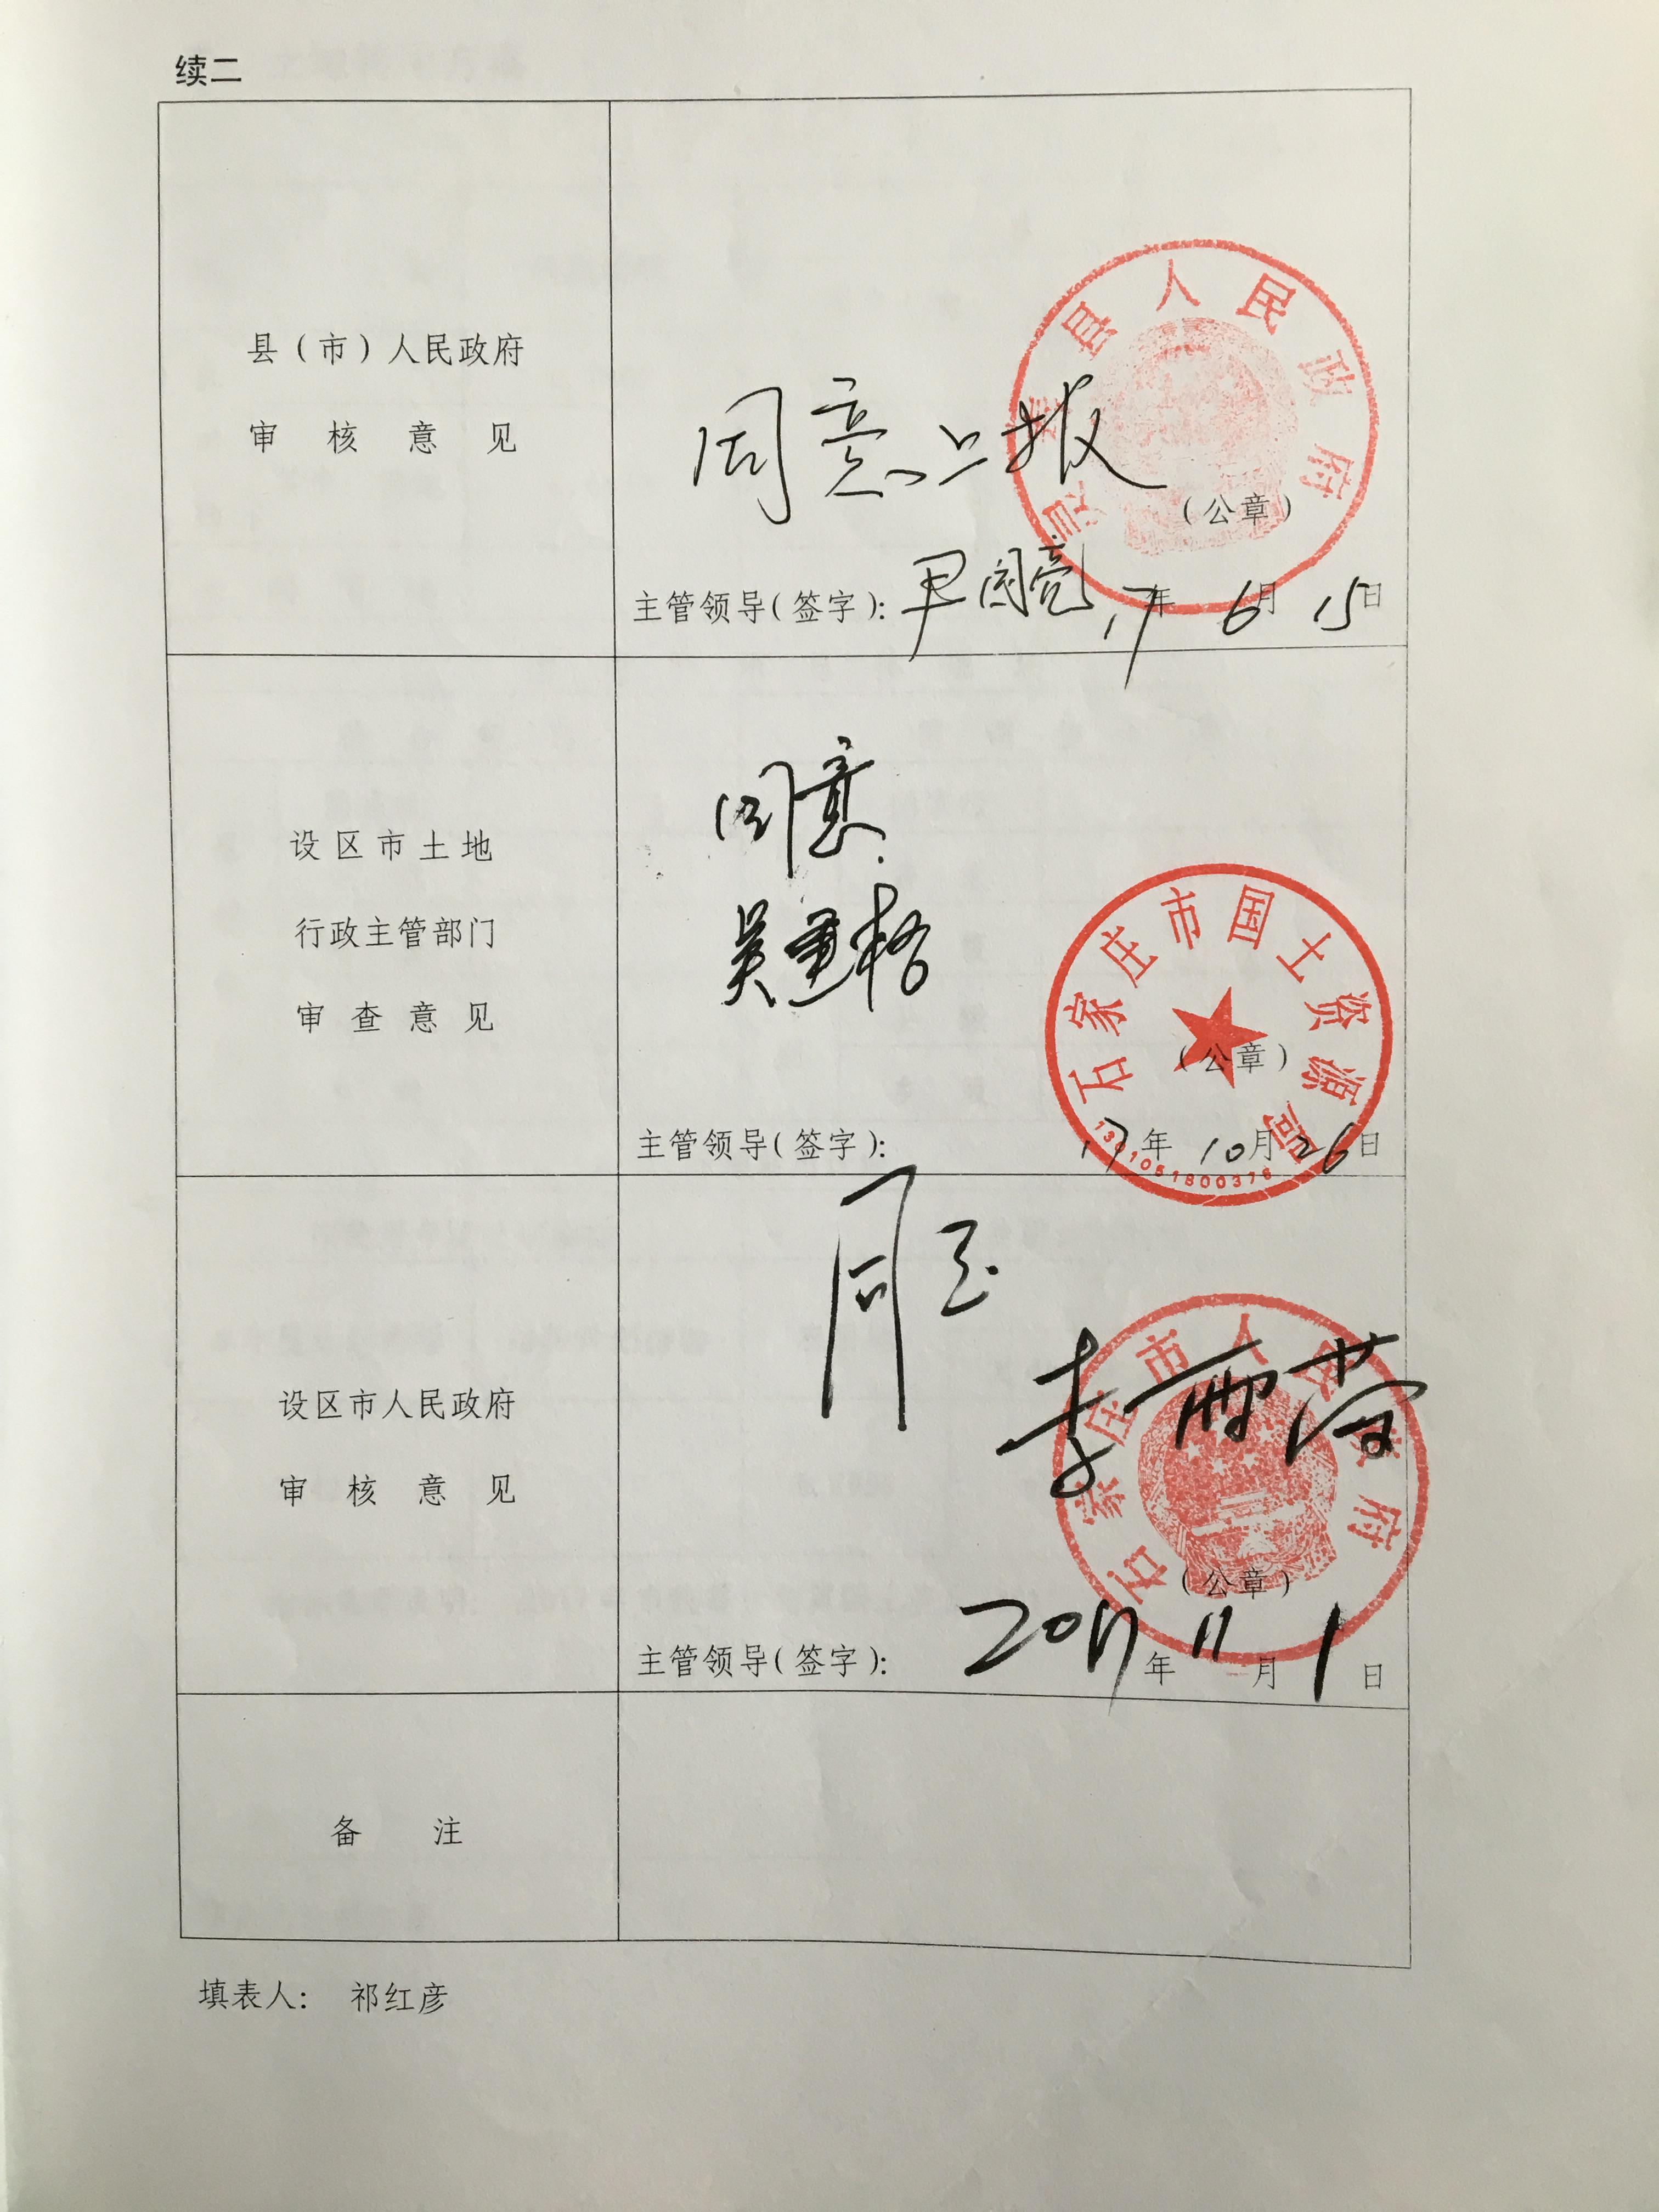 续二
县（市）人民政府
审核意见
同意上报
灵寿县人民政府
（公章）
主管领导（签字）：尹国亮 17年6月15日
设区市土地
行政主管部门
审查意见
同意
石家庄市国土资源局
（公章）
主管领导（签字）： 17年10月26日
设区市人民政府
审核意见
同意
李雪荣
石家庄市人民政府
（公章）
主管领导（签字）： 2017年11月1日
备注
填表人： 祁红彦